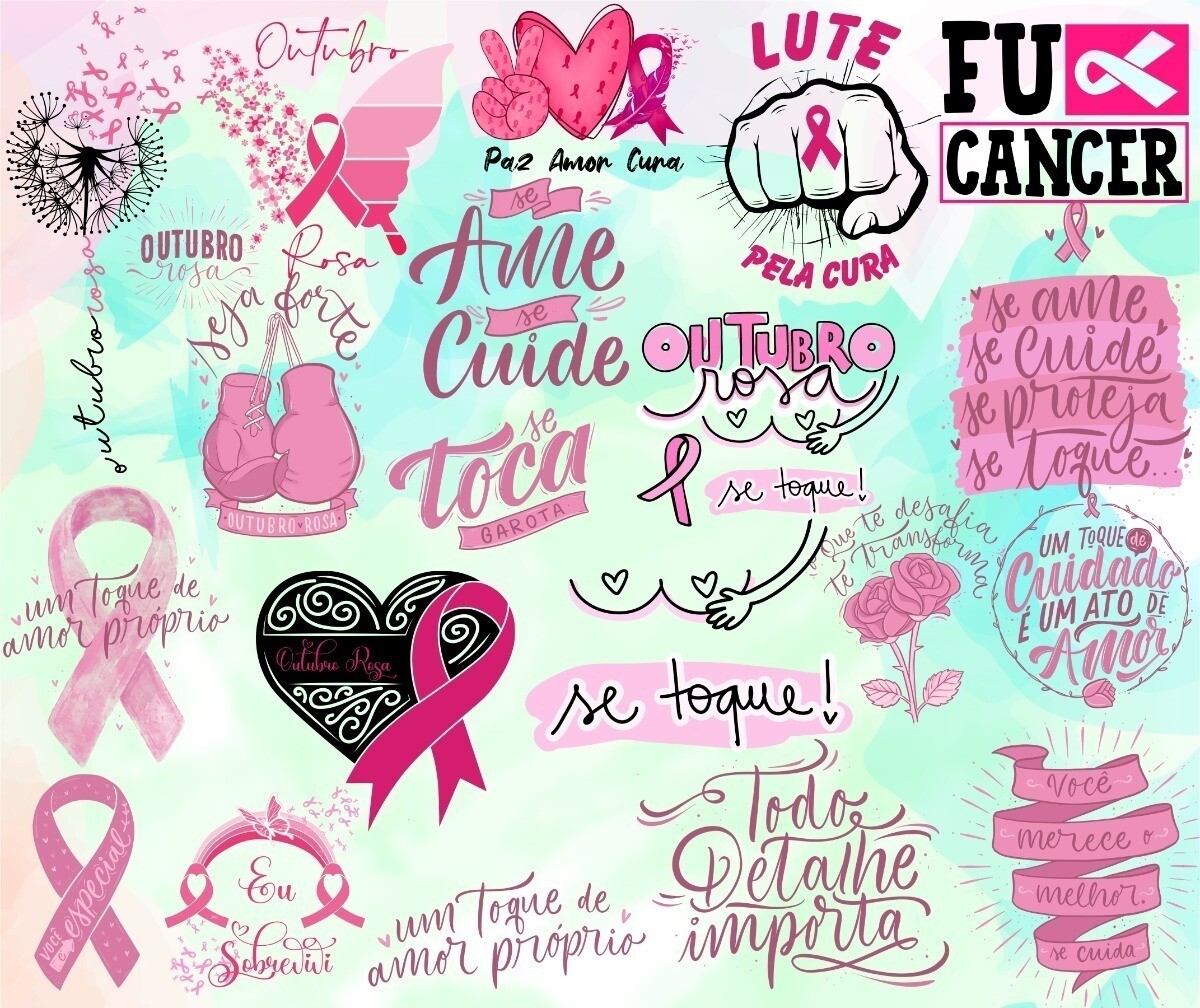 Outubro
Rosa
Paz Amor Cura
LUTE
PELA CURA
FU
CANCER
outubro rosa
OUTUBRO
rosa
se
Ame
se
Cuide
Seja forte
OUTUBRO ROSA
OUTUBRO
rosa
se toque!
se ame
se cuide
se proteja
se toque...
se
toca
GAROTA
um toque de
amor próprio
Outubro Rosa
se toque!
que te desafia
te transforma
UM TOQUE de
Cuidado
É UM ATO DE
Amor
você é especial
Eu
Sobrevivi
um toque de
amor próprio
Todo
Detalhe
importa
você
merece o
melhor.
se cuida